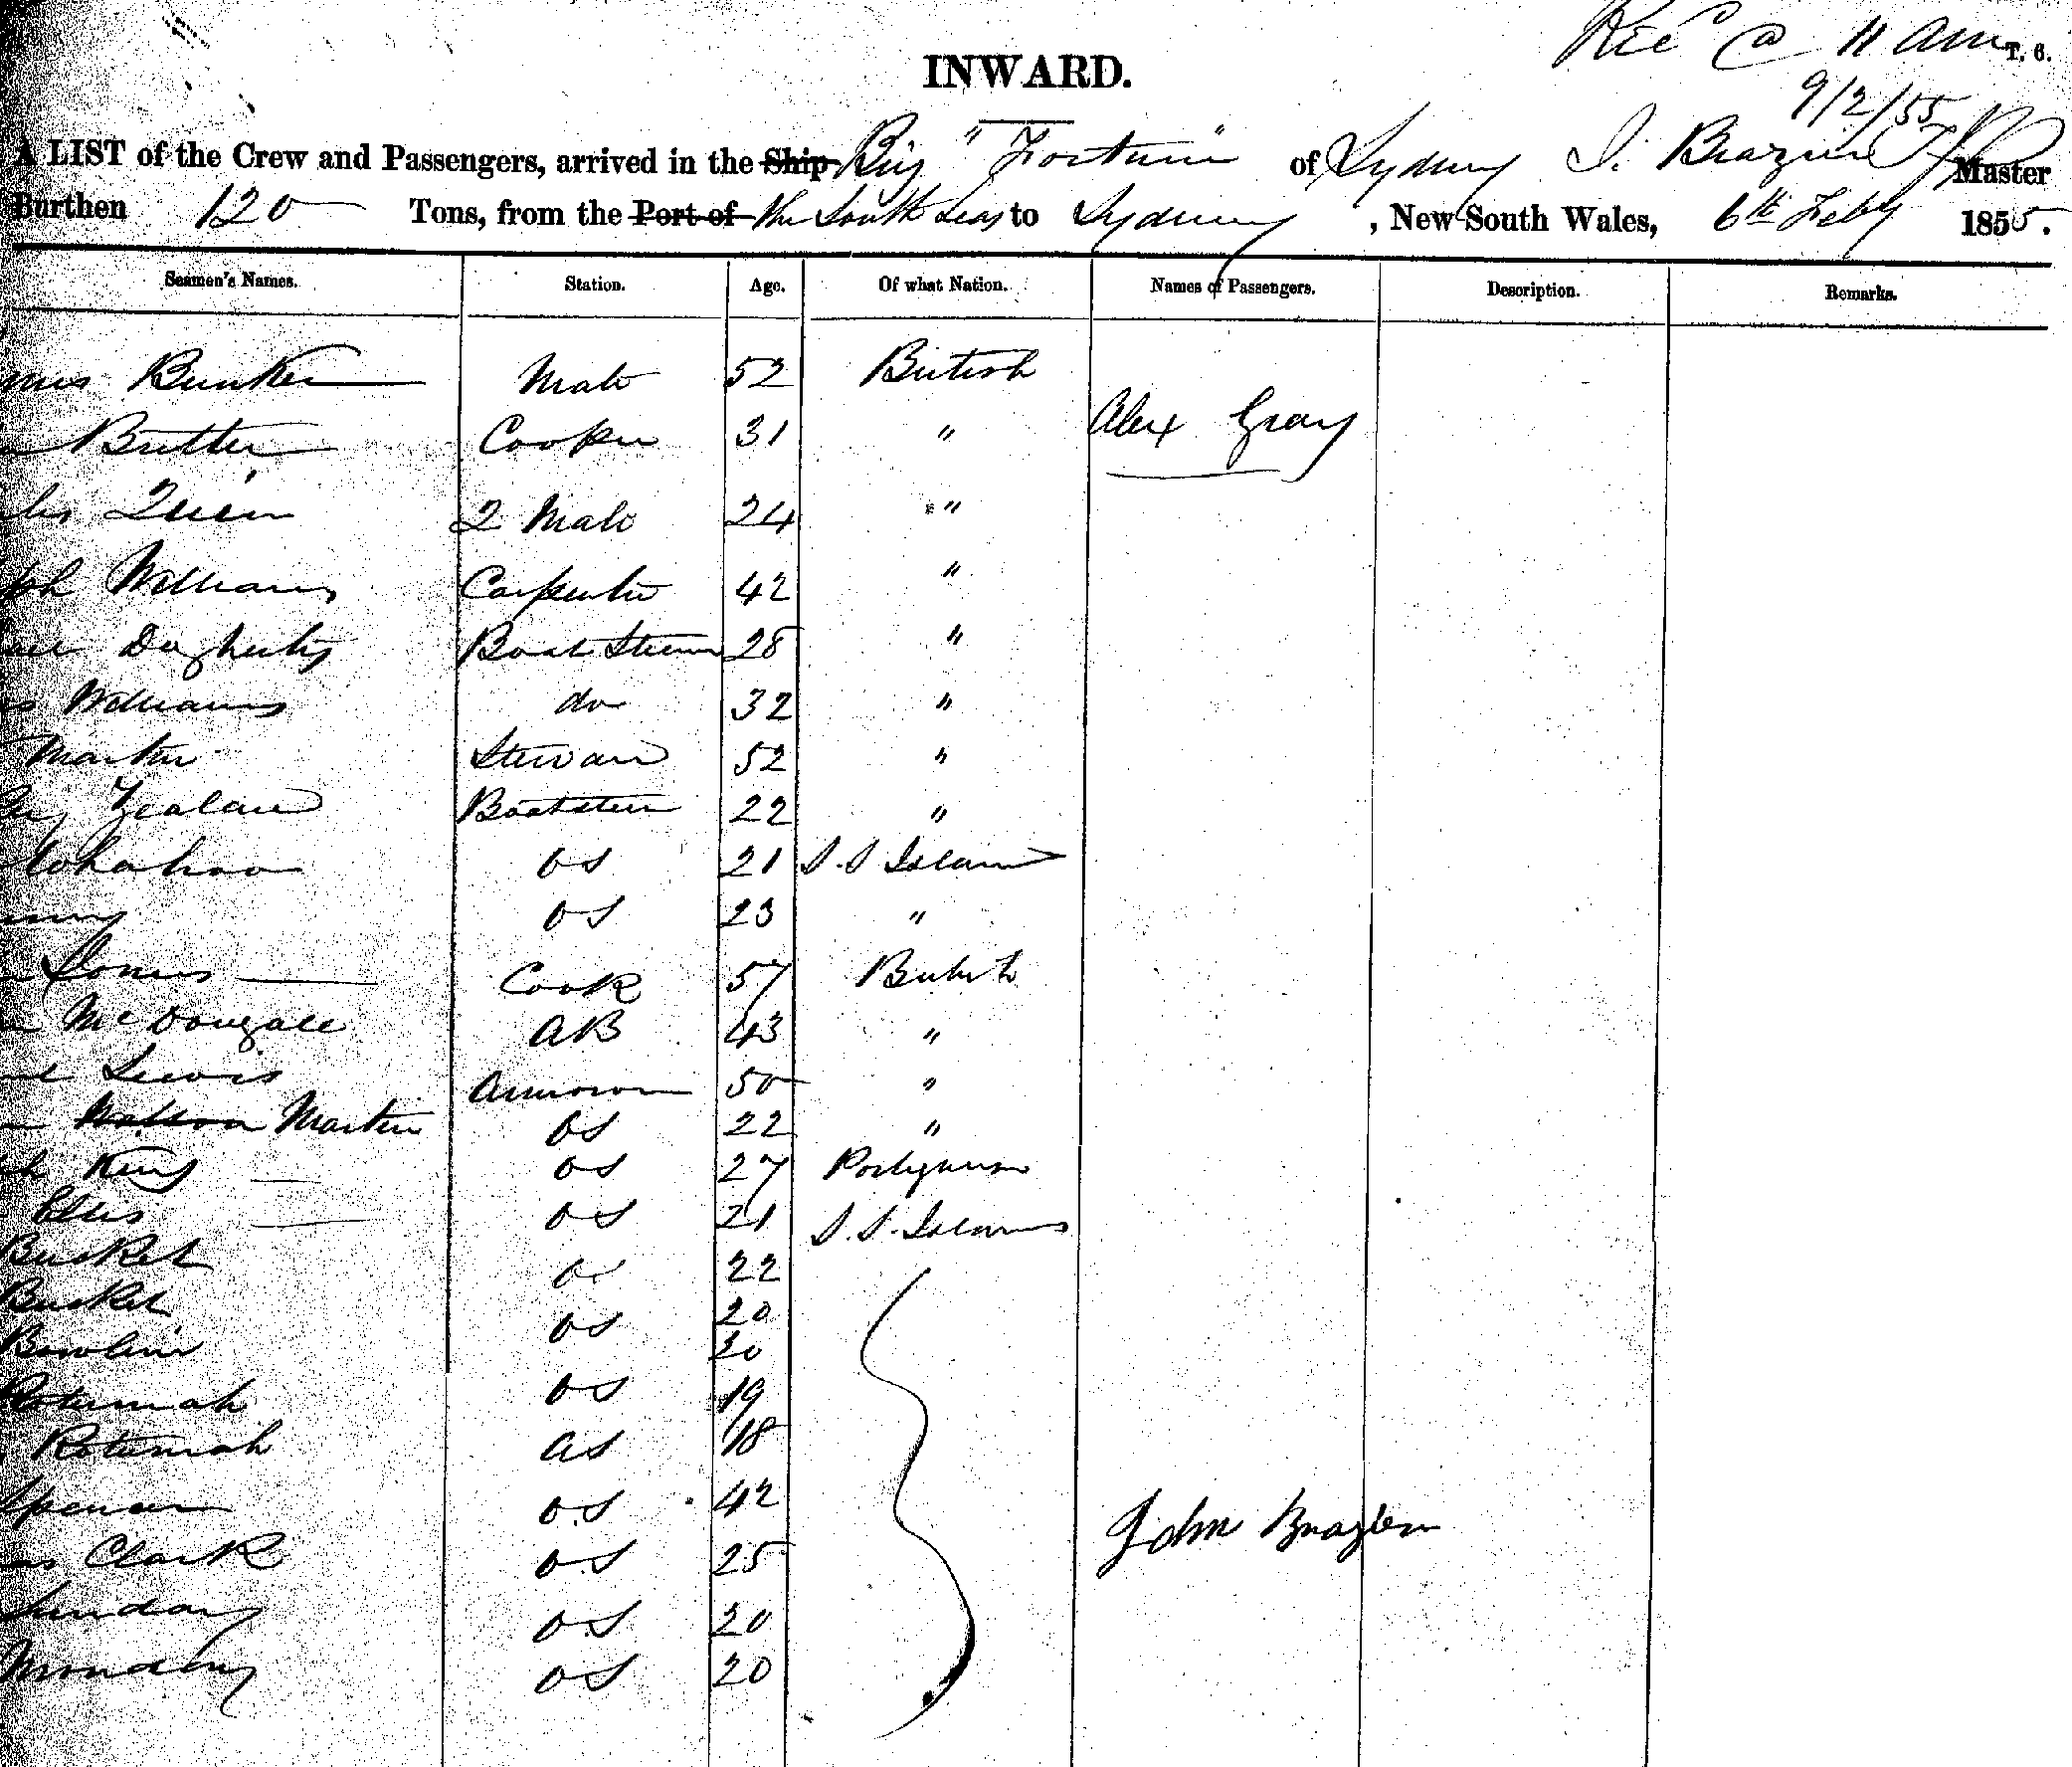 Rec @ 11 am T. 6.
INWARD.
9/2/55
A LIST of the Crew and Passengers, arrived in the Ship Brig "Fortune" of Sydney J. Brazier Master
Burthen 120 Tons, from the Port of the South Seas to Sydney, New South Wales, 6th Feby 1855.
Seamen's Names. Station. Age. Of what Nation. Names of Passengers. Description. Remarks.
Bunker Mate 52 British
Butler Cooper 31 " Alex Gray
Quin 2 Mate 24 "
Williams Carpenter 42 "
Dogherty Boat Steerer 28 "
Williams do 32 "
Martin Steward 52 "
Zealand Boatsteer 22 "
OS 21 S.S Island
OS 23 "
Cook 57 British
McDougall AB 43 "
Lewis 50 "
Watson Martin OS 22 "
King OS 27 Portuguese
Ellis OS 21 S.S. Islands
Bucket OS 22
Bucket OS 20
Bowline 20
Rotumah OS 19
Rotumah OS 18
Spencer O.S 42
Clark O.S 25 John Brazier
Sunday O.S 20
Monday OS 20